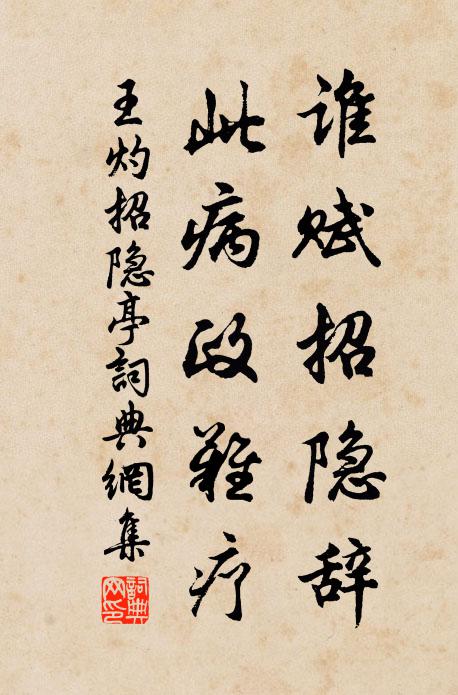 谁赋招隐辞
此病政难疗
王灼招隐亭詞典網集
詞典网印